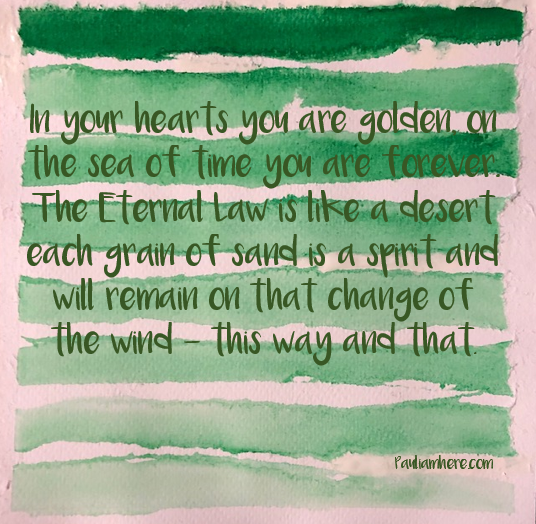 In your hearts you are golden, on
the sea of time you are forever.
The Eternal Law is like a desert
each grain of sand is a spirit and
will remain on that change of
the wind - this way and that.
Pauliamhere.com